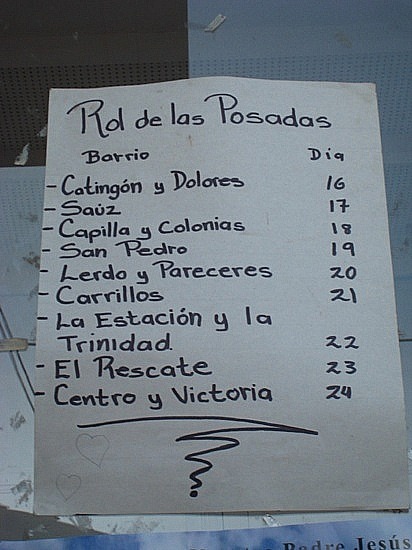 Rol de las Posadas
Barrio Dia
- Catingón y Dolores 16
- Saúz 17
- Capilla y Colonias 18
- San Pedro 19
- Lerdo y Pareceres 20
- Carrillos 21
- La Estación y la
Trinidad 22
- El Rescate 23
- Centro y Victoria 24
Padre Jesús